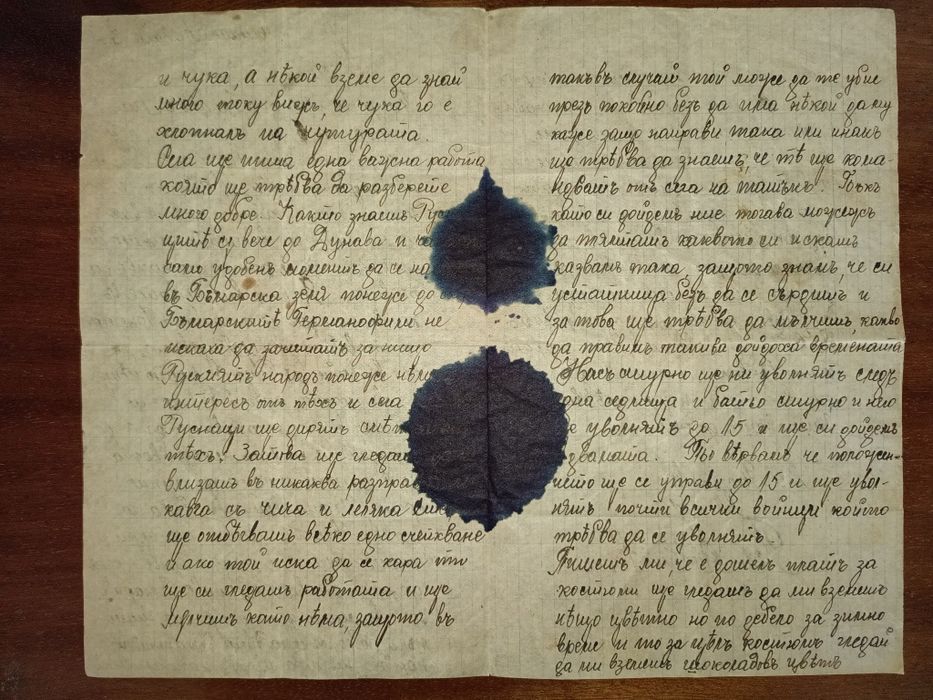 и чука, а нѣкой вземе да знай
много току виждъ, че чука го е
хлопналъ на чутурата.
Сега ще пиша една важна работа
която ще трѣбва да разберете
много добре. Както знаешъ
сѫ вече до Дунава и
само удобенъ моментъ да се
въ Българска земя понеже до
Българскитѣ Германофили не
искаха да зачитатъ за нищо
Рускиятъ народъ понеже
интересъ отъ тѣхъ и сега
Руснаци ще дирятъ
тѣхъ. Затова ще гледашъ
влизашъ въ никаква
кавга съ чича и леляка
ще отбѣгвашъ всѣко едно счепкване
и ако той иска да се кара ти
ще си гледашъ работата и ще
мълчишъ като нѣма, защото въ
такъвъ случай той може да те убие
презъ покойно безъ да има нѣкой да му
каже защо направи така или инакъ
що трѣбва да знаешъ, че тѣ ще кома-
новатъ отъ сега на татъкъ. Пъкъ
като си дойдемъ ние тогава можешъ
да плямпашъ каквото си искашъ
казвамъ така, защото знамъ, че си
устатница безъ да се сърдишъ и
за това ще трѣбва да мълчишъ, какво
да правимъ такива дойдоха времената
Насъ сигурно ще ни уволнятъ следъ
една седмица и батьо сигурно и него
ще уволнятъ до 15 и ще си дойдемъ
двамата. По вѣрвамъ че положен-
ието ще се управи до 15 и ще увол-
нятъ почти всички войници който
трѣбва да се уволнятъ.
Пишешъ ми, че е дошелъ платъ за
костюми ще гледашъ да ми вземешъ
нѣщо цвѣтно но по дебело за зимно
време и то за цѣлъ костюмъ гледай
да ми вземешъ шоколадовъ цвѣтъ